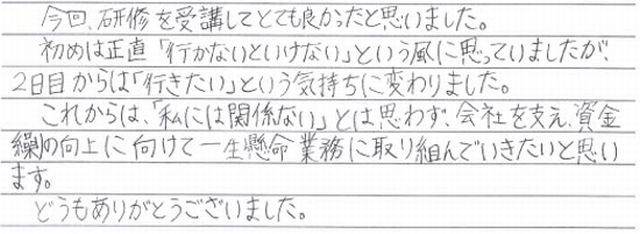 今回、研修を受講してとても良かったと思いました。
初めは正直「行かないといけない」という風に思っていましたが、
2日目からは「行きたい」という気持ちに変わりました。
これからは、「私には関係ない」とは思わず、会社を支え、資金
繰の向上に向けて一生懸命業務に取り組んでいきたいと思い
ます。
どうもありがとうございました。